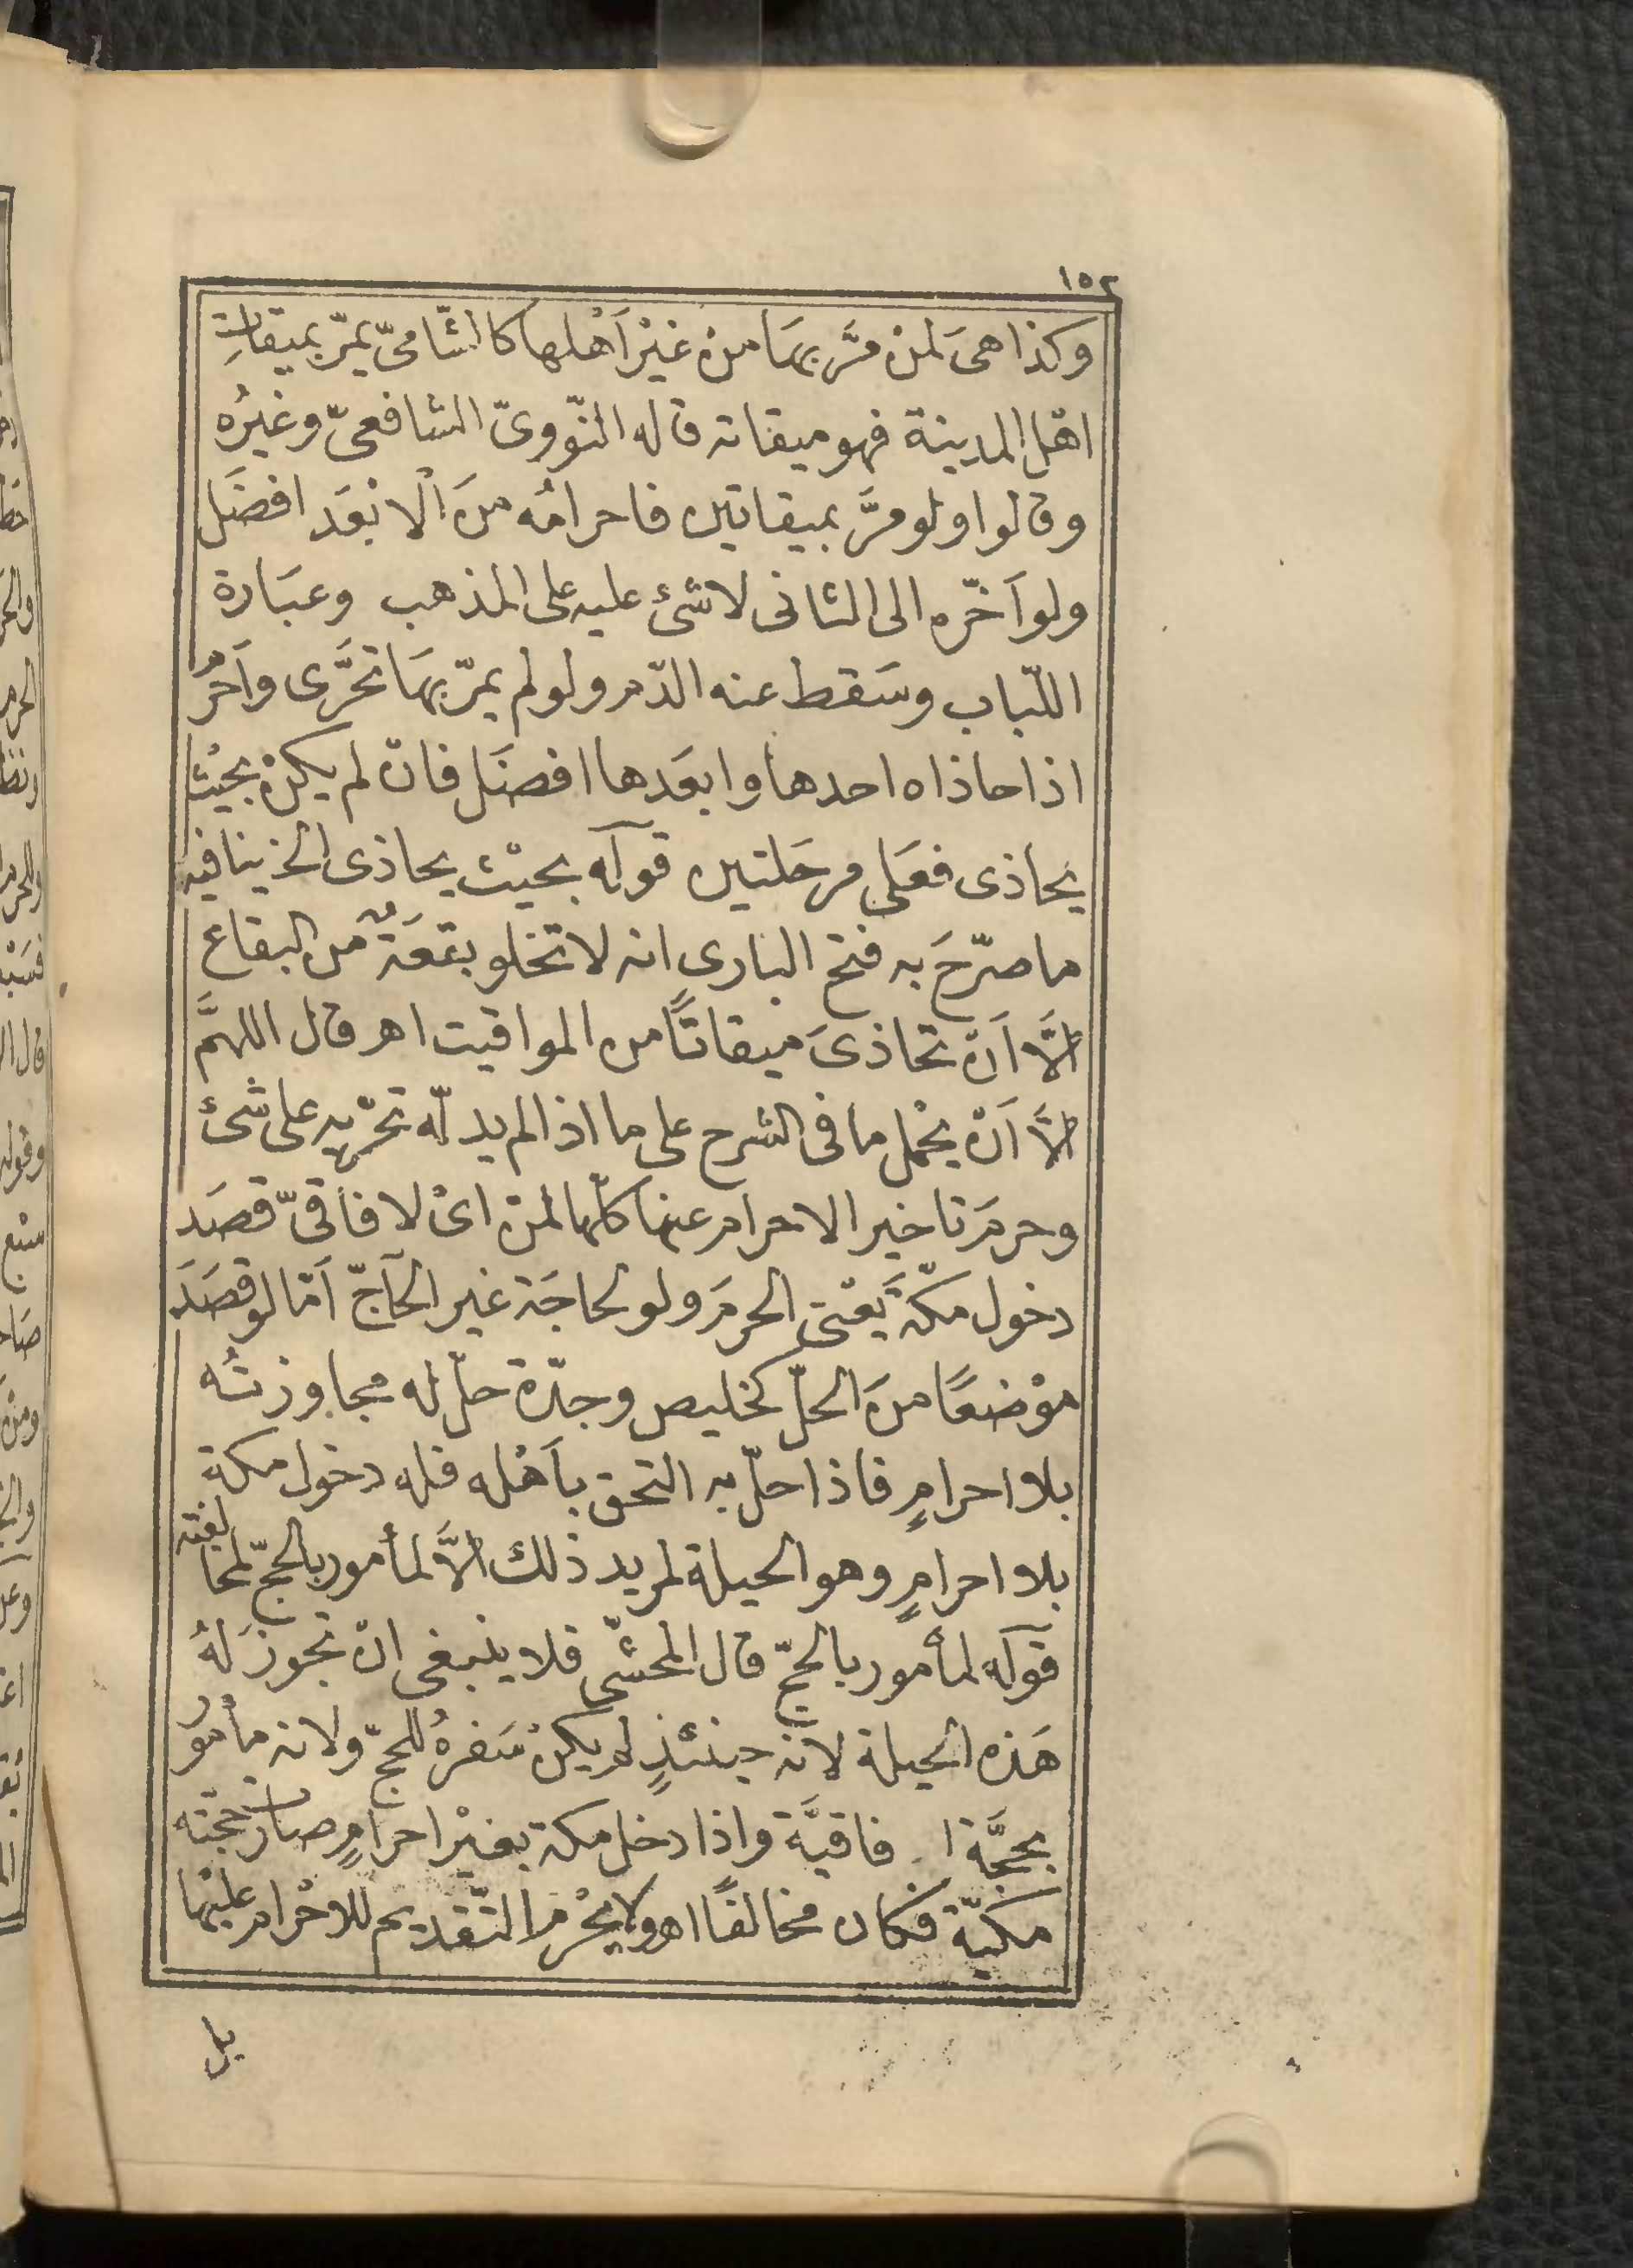 ١٥٢
وكذا هىَ لمنْ مرَّ بهَا منْ غيْرِ اَهْلها كالشّامىّ يمرّ بميقاتِ
اهْل المدينة فهو ميقاته قاله النّووىّ الشافعىّ وغيرُه
وقالوا ولو مرَّ بميقاتين فاحرامُه منَ الْابْعَد افضَل
ولو اَخّره الى الثانى لا شئ عليه على المذهب وعبَارة
اللّباب وسَقط عنه الدّم ولو لم يمرّ بهَا تحَرَّى واَحْرَمَ
اذا حاذاه احدها وابعَدها افضَل فانْ لم يكنْ بحيْث
يحَاذى فعَلى مرحَلتين قوله بحيْث يحاذى الخ ينافيه
ما صرّحَ به فتح البارى انه لا تخلو بقعَةٌ من البقاع
الَّا اَنْ تحَاذىَ ميقاتًا من المواقيت اهـ قال اللهمَّ
الَّا اَنْ يحْمل ما فى الشرح على ما اذا لم يدلّه تحَرّيه على شئ
وحرمَ تاخير الاحرام عنها كلّها لمنْ اىْ لافاقىّ قصَد
دخول مكّة يَعْنى الحرمَ ولو لحاجَة غير الحَاجّ اَمّا لو قصَدَ
موْضعًا منَ الحلّ كخليص وجدّة حلّ له مجاوزتُه
بلا احرامٍ فاذا حلّ به التحق باَهْله فله دخول مكة
بلا احرامٍ وهو الحيلة لمريد ذلك الَّا لمأمور بالحجّ لمخالفته
قوله لمأمور بالحجّ قال المحشّى فلا ينبغى انْ تجوزَ لهُ
هَذه الحيلة لانّه حينئذٍ لم يكنْ سَفرهُ للحجّ ولانه مأمور
بحجَّة ا فاقيَّة واذا دخل مكة بغيْر احرامٍ صارَت حجّته
مكيّة فكان مخالفًا اهـ ولا يحْرم التّقديم للاحْرام عليْها
بل